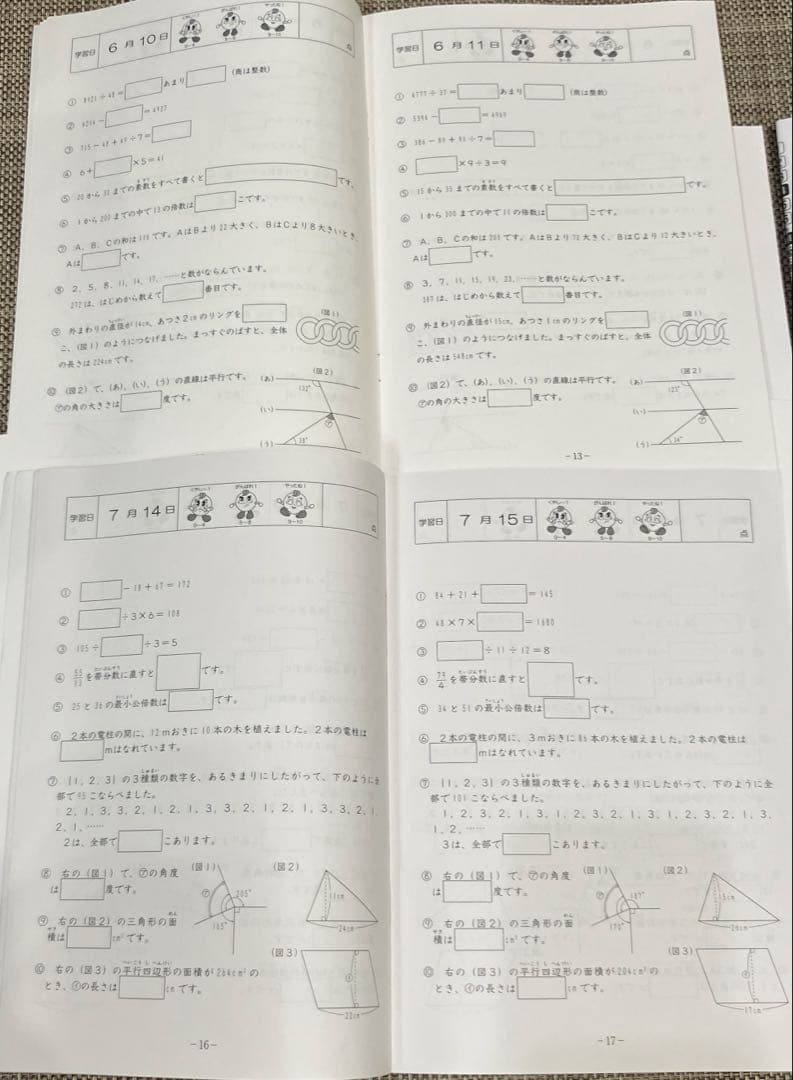 学習日 6月10日 くやしい! がんばれ! やったね! 0-4 5-8 9-10 点
① 8921÷48=□あまり□ (商は整数)
② 6214-□=4927
③ 715-48+49÷7=□
④ 6+□×5=41
⑤ 20から までの素数をすべて書くと□です。
⑥ 1から200までの中で13の倍数は□こです。
⑦ A、B、Cの和は119です。AはBより22大きく、BはCより8大きいとき、
Aは□です。
⑧ 2、5、8、11、14、17、……と数がならんでいます。
272は、はじめから数えて□番目です。
⑨ 外まわりの直径が14cm、あつさ2cmのリングを□
こ、(図1)のようにつなげました。まっすぐのばすと、全体
の長さは224cmです。
(図1)
⑩ (図2)で、(あ)、(い)、(う)の直線は平行です。
㋐の角の大きさは□度です。
(図2)
(あ)
132°
(い)
㋐
(う) 38°
学習日 6月11日 くやしい! がんばれ! やったね! 0-4 5-8 9-10 点
① 6777÷37=□あまり□ (商は整数)
② 5394-□=4969
③ 386-89+91÷7=□
④ □×9÷3=9
⑤ 15から35までの素数をすべて書くと□です。
⑥ 1から200までの中で の倍数は□こです。
⑦ A、B、Cの和は です。AはBより72大きく、BはCより12大きいとき、
Aは□です。
⑧ 3、7、11、15、19、23、……と数がならんでいます。
は、はじめから数えて□番目です。
⑨ 外まわりの直径が15cm、あつさ1cmのリングを□
こ、(図1)のようにつなげました。まっすぐのばすと、全体
の長さは548cmです。
(図1)
⑩ (図2)で、(あ)、(い)、(う)の直線は平行です。
㋐の角の大きさは□度です。
(図2)
(あ)
123°
(い)
㋐
(う) 34°
-13-
学習日 7月14日 くやしい! がんばれ! やったね! 0-4 5-8 9-10
① □-18+67=172
② □÷3×6=108
③ 105÷□÷3=5
④ を帯分数に直すと□です。
⑤ 25と36の最小公倍数は□です。
⑥ 2本の電柱の間に、12mおきに10本の木を植えました。2本の電柱は
□mはなれています。
⑦ {1、2、3}の3種類の数字を、あるきまりにしたがって、下のように全
部で95こならべました。
2、1、3、3、2、1、2、1、3、3、2、1、2、1、3、3、2、1、
2、1、……
2は、全部で□こあります。
⑧ 右の(図1)で、㋐の角度
は□度です。
(図1)
㋐ 205°
165°
⑨ 右の(図2)の三角形の面
積は□cm²です。
(図2)
11cm
24cm
⑩ 右の(図3)の平行四辺形の面積が264cm²の
とき、㋑の長さは□cmです。
(図3)
㋑
22cm
-16-
学習日 7月15日 くやしい! がんばれ! やったね! 0-4 5-8 9-10 点
① 84+21+□=145
② 48×7×□=1680
③ □÷11÷12=8
④ 79/4を帯分数に直すと□です。
⑤ 34と51の最小公倍数は□です。
⑥ 2本の電柱の間に、3mおきに85本の木を植えました。2本の電柱は
□mはなれています。
⑦ {1、2、3}の3種類の数字を、あるきまりにしたがって、下のように全
部で101こならべました。
1、2、3、2、1、3、1、2、3、2、1、3、1、2、3、2、1、3、
1、2、……
3は、全部で□こあります。
⑧ 右の(図1)で、㋐の角度
は□度です。
(図1)
㋐ 187°
170°
⑨ 右の(図2)の三角形の面
積は□cm²です。
(図2)
15cm
⑩ 右の(図3)の平行四辺形の面積が204cm²の
とき、㋑の長さは□cmです。
(図3)
㋑
17cm
-17-